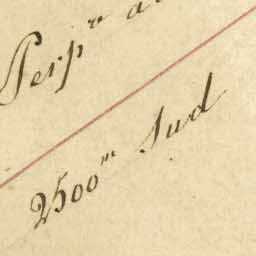 Perp.r a
2500m Sud